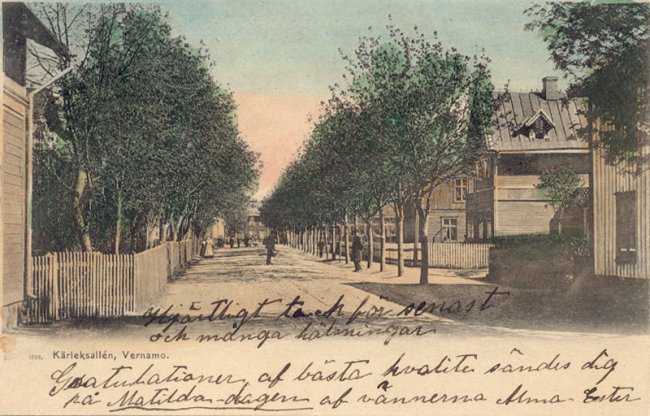 Hjärtligt tack för senast
och många hälsningar
Kärleksallén, Vernamo.
Gratulationer, af bästa kvalité sändes dig
på Matilda-dagen af vännerna Alma-Ester